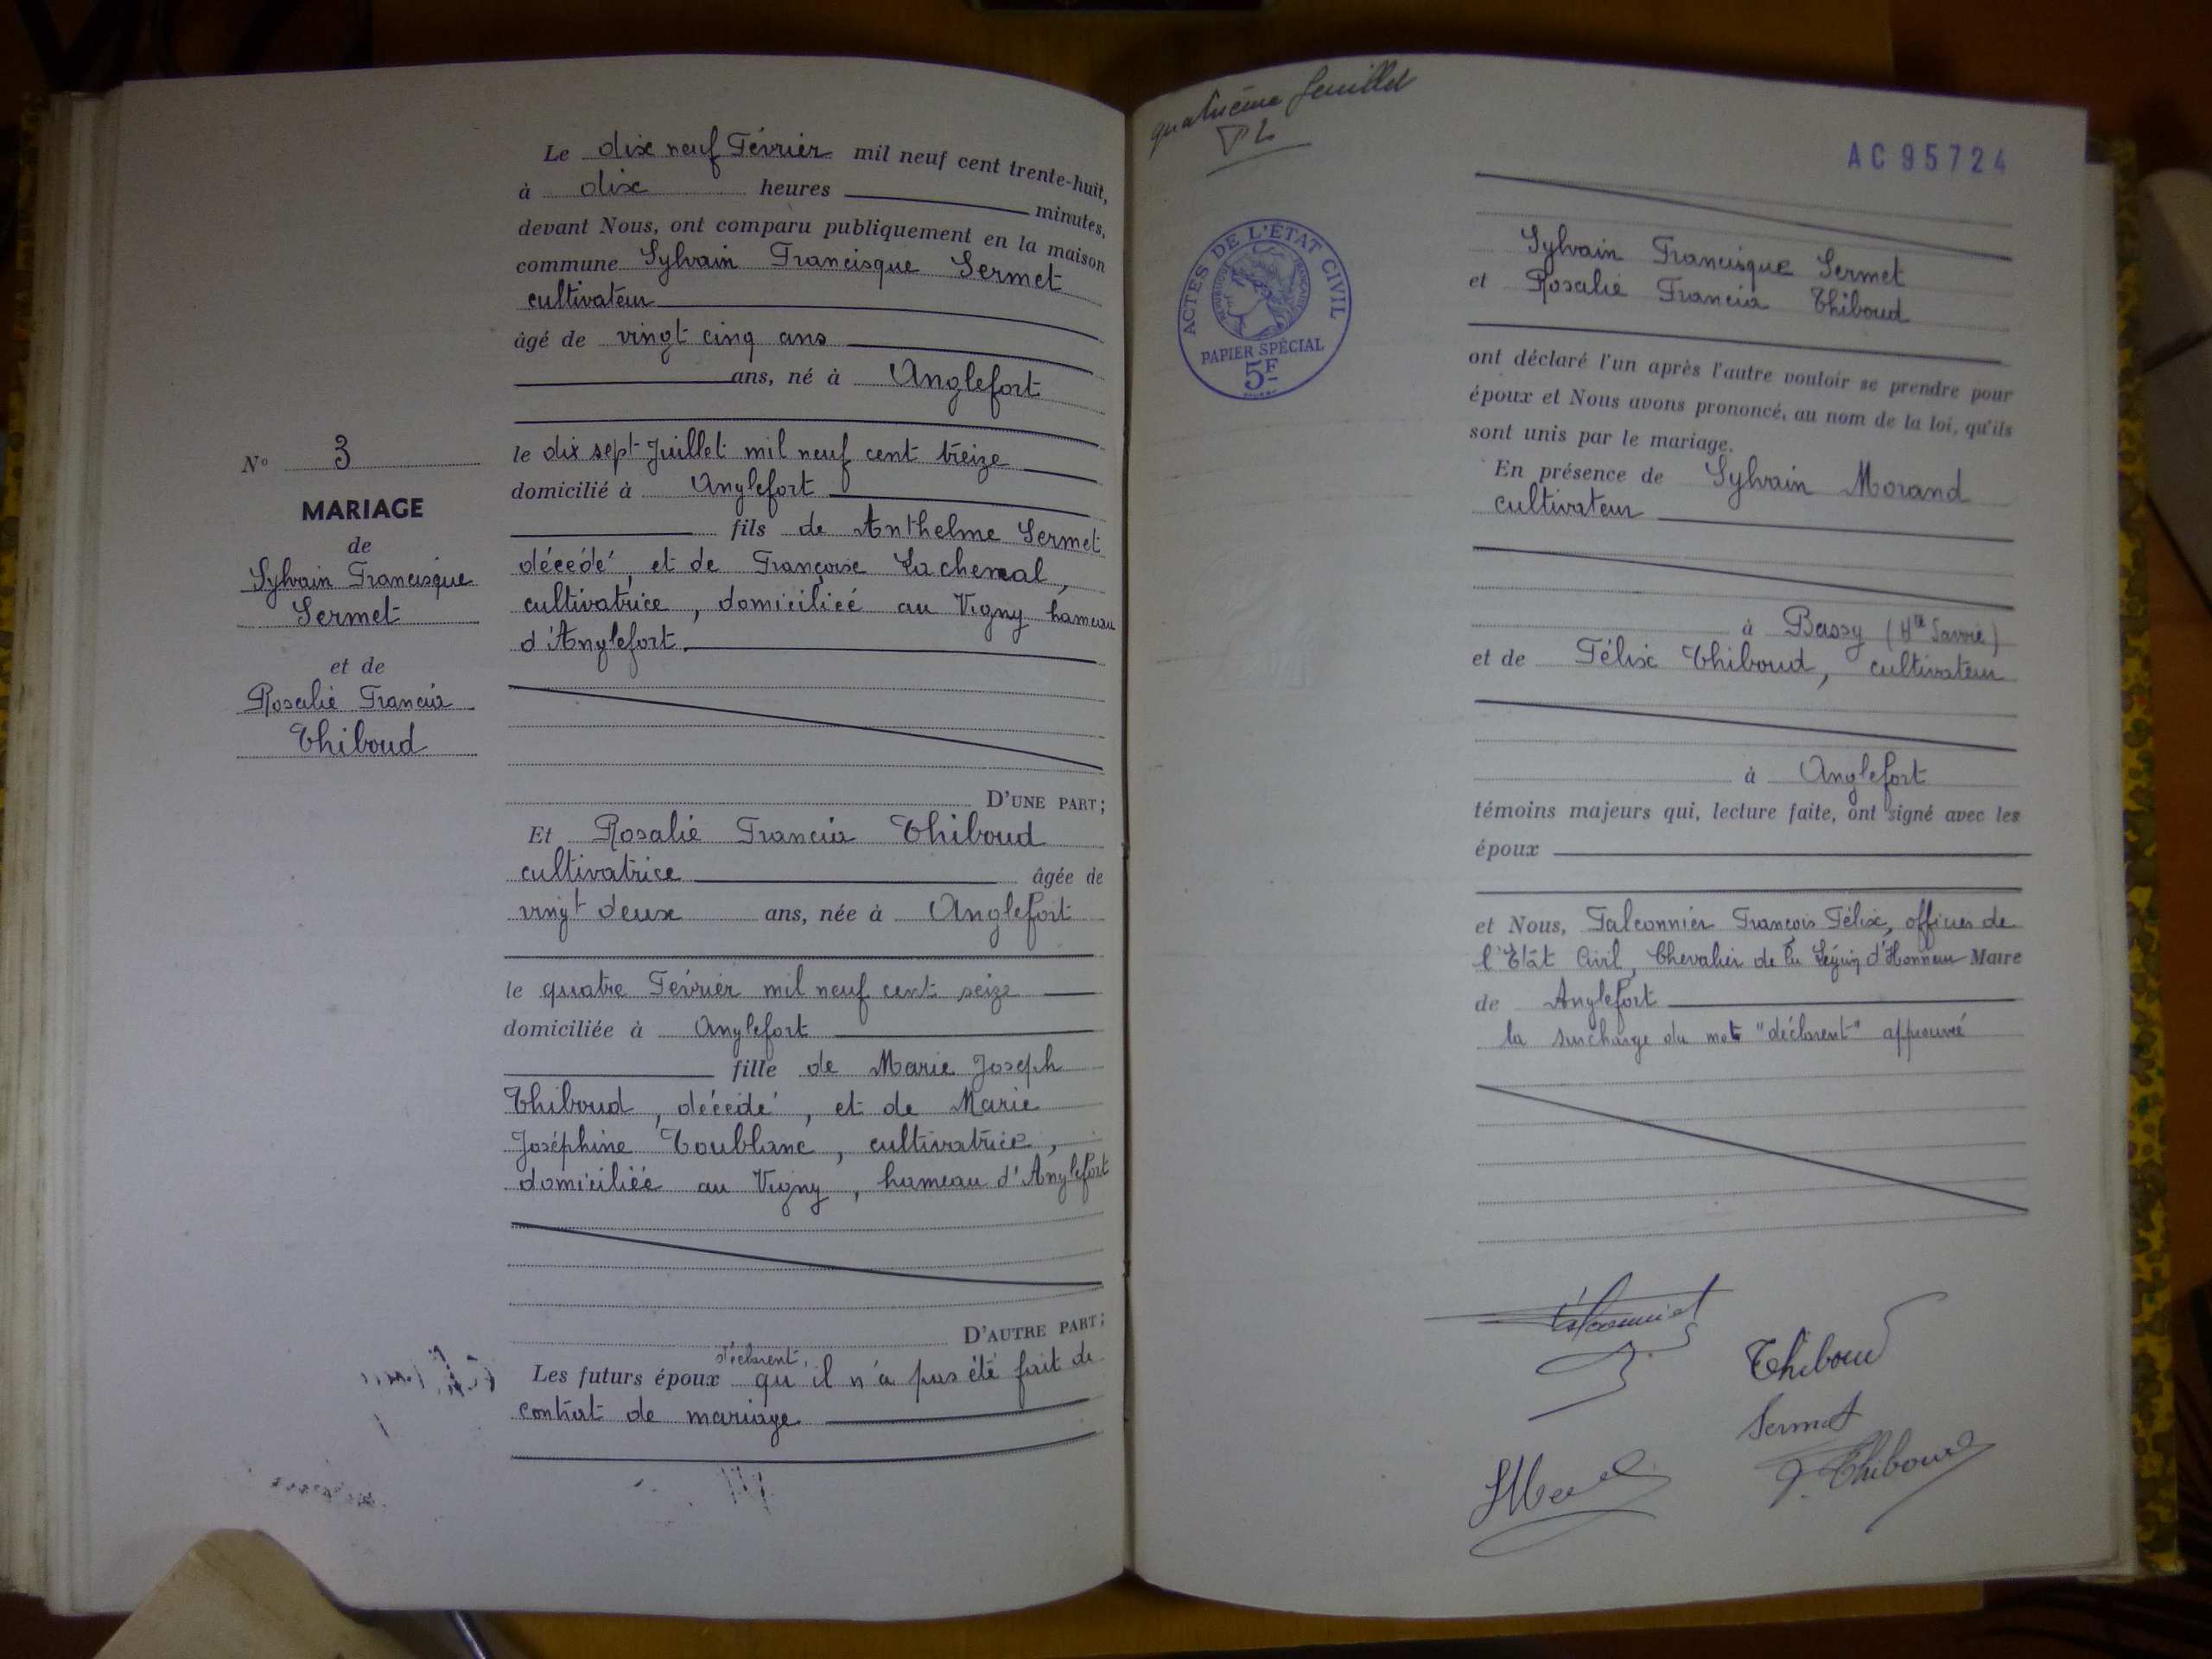 Le dix neuf Février mil neuf cent trente-huit,
à dix heures minutes,
devant Nous, ont comparu publiquement en la maison
commune Sylvain Francisque Sermet
cultivateur
âgé de vingt cinq ans
ans, né à Anglefort
le dix sept Juillet mil neuf cent treize
domicilié à Anglefort
fils de Anthelme Sermet
décédé, et de Françoise Lachenal,
cultivatrice, domiciliée au Vigny hameau
d'Anglefort.
D'UNE PART;
Et Rosalie Francia Thiboud
cultivatrice âgée de
vingt deux ans, née à Anglefort
le quatre Février mil neuf cent seize
domiciliée à Anglefort
fille de Marie Joseph
Thiboud, décédé, et de Marie
Joséphine Toublanc, cultivatrice,
domiciliée au Vigny, hameau d'Anglefort
D'AUTRE PART;
déclarent,
Les futurs époux qu'il n'a pas été fait de
contrat de mariage
N° 3
MARIAGE
de
Sylvain Francisque
Sermet
et de
Rosalie Francia
Thiboud
quatrième feuillet
AC95724
ACTES DE L'ÉTAT CIVIL
RÉPUBLIQUE FRANÇAISE
PAPIER SPÉCIAL
5F
Sylvain Francisque Sermet
et Rosalie Francia Thiboud
ont déclaré l'un après l'autre vouloir se prendre pour
époux et Nous avons prononcé, au nom de la loi, qu'ils
sont unis par le mariage.
En présence de Sylvain Morand
cultivateur
à Bassy (Hte Savoie)
et de Félix Thiboud, cultivateur
à Anglefort
témoins majeurs qui, lecture faite, ont signé avec les
époux
et Nous, Falconnier François Félix, officier de
l'Etat Civil, Chevalier de la Légion d'Honneur Maire
de Anglefort
la surcharge du mot "déclarent" approuvé
Thiboud
Sermet
F. Thiboud